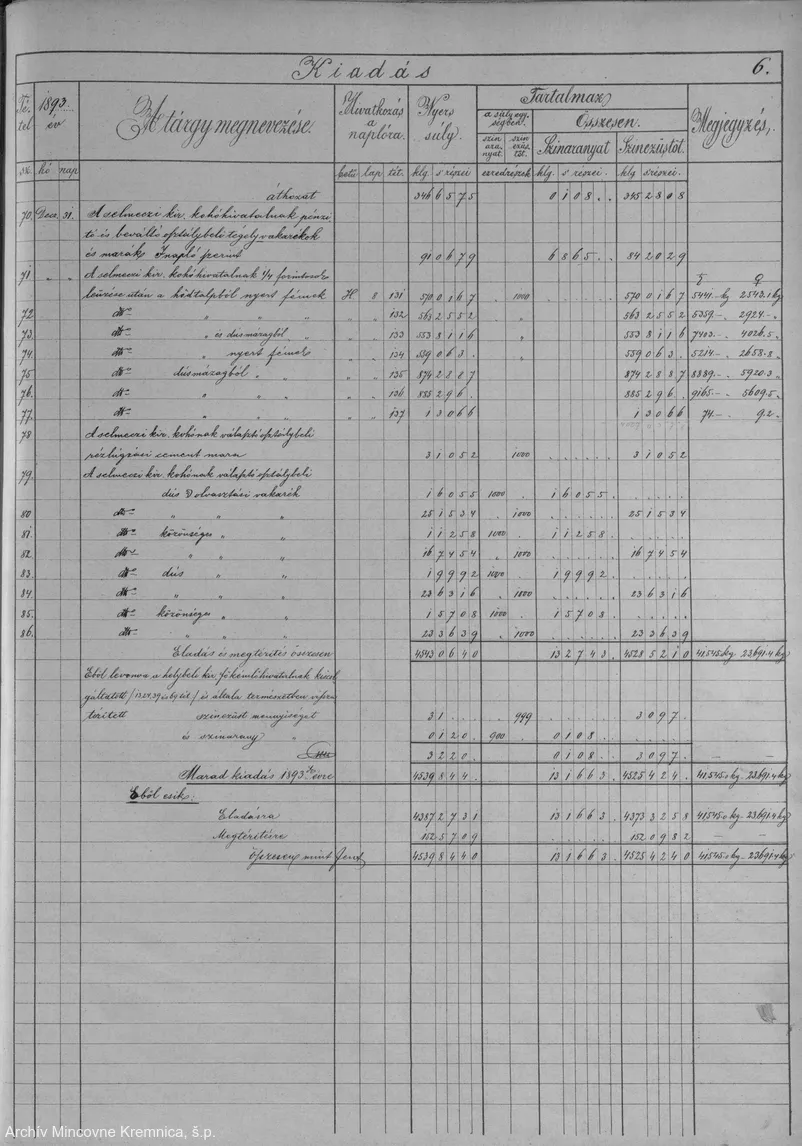 Kiadás 6.
Tétel 1893 év A tárgy megnevezése. Hivatkozás a naplóra. Nyers súly. Tartalmaz Megjegyzés,
a súly egységben. Összesen.
szinaranyat. szinezüstöt. Szinaranyat Szinezüstöt.
sz. hó nap betü lap tét. klg. s részei ezredrészek klg. s részei. klg. s részei.
áthozat 346 6575 0108.. 345 2808
70. Dec. 31. A selmeczi kir. kohóhivatalnak pénzi-
tő és beváltó osztálybeli tégely vakarékok
és marák napló szerint 91 0679 6 865.. 84 2029
71. " " A selmeczi kir. kohóhivatalnak 1/4 forintosok
után a nyert fémek H 8 131 570 0167 " 1000 570 0167 5441.- kg 2543.1 kg
72. dto " " " " " 132 563 2552 " 563 2552 5359.- 2924.-
73. dto " és dúsmázagból " " " 133 553 8116 " 553 8116 7403.- 4026.5
74. dto " nyert fémek " " 134 559 063. " 559 063. 5214.- 2658.8
75. dto dúsmázagból " " " " 135 874 2887 " 874 2887 8889.- 5920.3
76. dto " " " " " 136 885 296. 885 296. 9165.- 5609.5
77. dto " " " " " 137 1 3066 1 3066 74.- 9.2
78 A selmeczi kir. kohónak választó osztálybeli
rézlúgzási cement mara 3 1052 1000 3 1052
79. A selmeczi kir. kohónak választó osztálybeli
dús olvasztási vakarék 1 6055 1000 1 6055
80 dto " " " 25 1534 1000 25 1534
81. dto közönséges " " 1 1258 1000 1 1258
82. dto " " " 16 7454 1000 16 7454
83. dto dús " " 1 9992 1000 1 9992
84. dto " " " 23 6316 1000 23 6316
85. dto közönséges " " 1 5708 1000 1 5708
86. dto " " " 23 3639 1000 23 3639
Eladás és megtérítés összesen 4543 0640 13 2743. 4528 5210 41545 kg 23691.4 kg
Ebből levonva a helybeli kir. főkémlőhivatalnak kiszol-
gáltatott és általa természetben vissza
térített szinezüst mennyiséget 3 1... 999 3 097.
és szinarany " 0 120. 900 0 108.
3 220. 0 108. 3 097. — —
Marad kiadás 1893 évre 4539 844. 13 1663. 4525 424. 41545.0 kg 23691.4 kg
Ebből esik:
Eladásra 4387 2731 13 1663. 4373 3258 41545.0 kg 23691.4 kg
Megtérítésre 152 5709 152 0982 — —
Összesen mint fent 4539 8440 13 1663. 4525 4240 41545.0 kg 23691.4 kg
Archív Mincovne Kremnica, š.p.